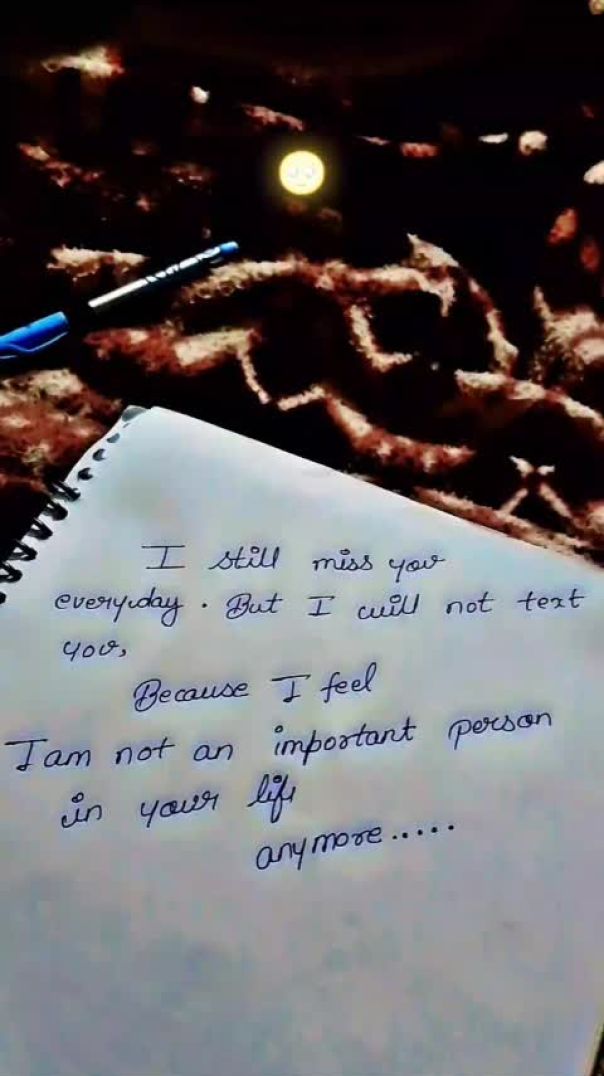 I still miss you
everyday. But I will not text
you,
Because I feel
I am not an important person
in your life
anymore.....